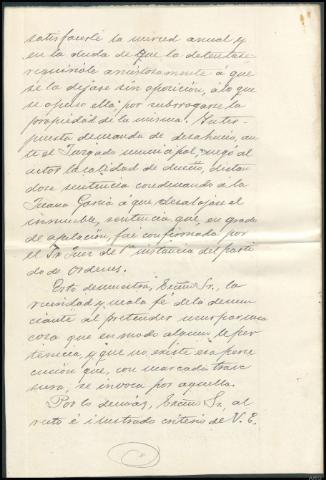 satisfacerle la merced anual y
en la duda de que la detentase
requirióle amistosamente á que
se la dejase sin oposición, á lo que
se opuso ella por subrrogarse la
propiedad de la misma. Inter-
puesta demanda de desahucio, an-
te el Juzgado municipal, negó al
actor la calidad de dueño, dictan
dose sentencia condenando á la
Juana García á que desalojase el
inmueble, sentencia que, en grado
de apelación, fué confirmada por
el Sr. Juez de 1ª instancia del parti
do de Ordenes.
Esto demuestra, Excmo Sr., la
vecindad y mala fe de la denun
ciante al pretender usurpar una
cosa que en modo alguno le per-
tenecía, y que no existe esa perse
cución que, con marcada trave
sura, se invoca por aquella.
Por lo demás, Excmo Sr., al
recto é ilustrado criterio de V. E.